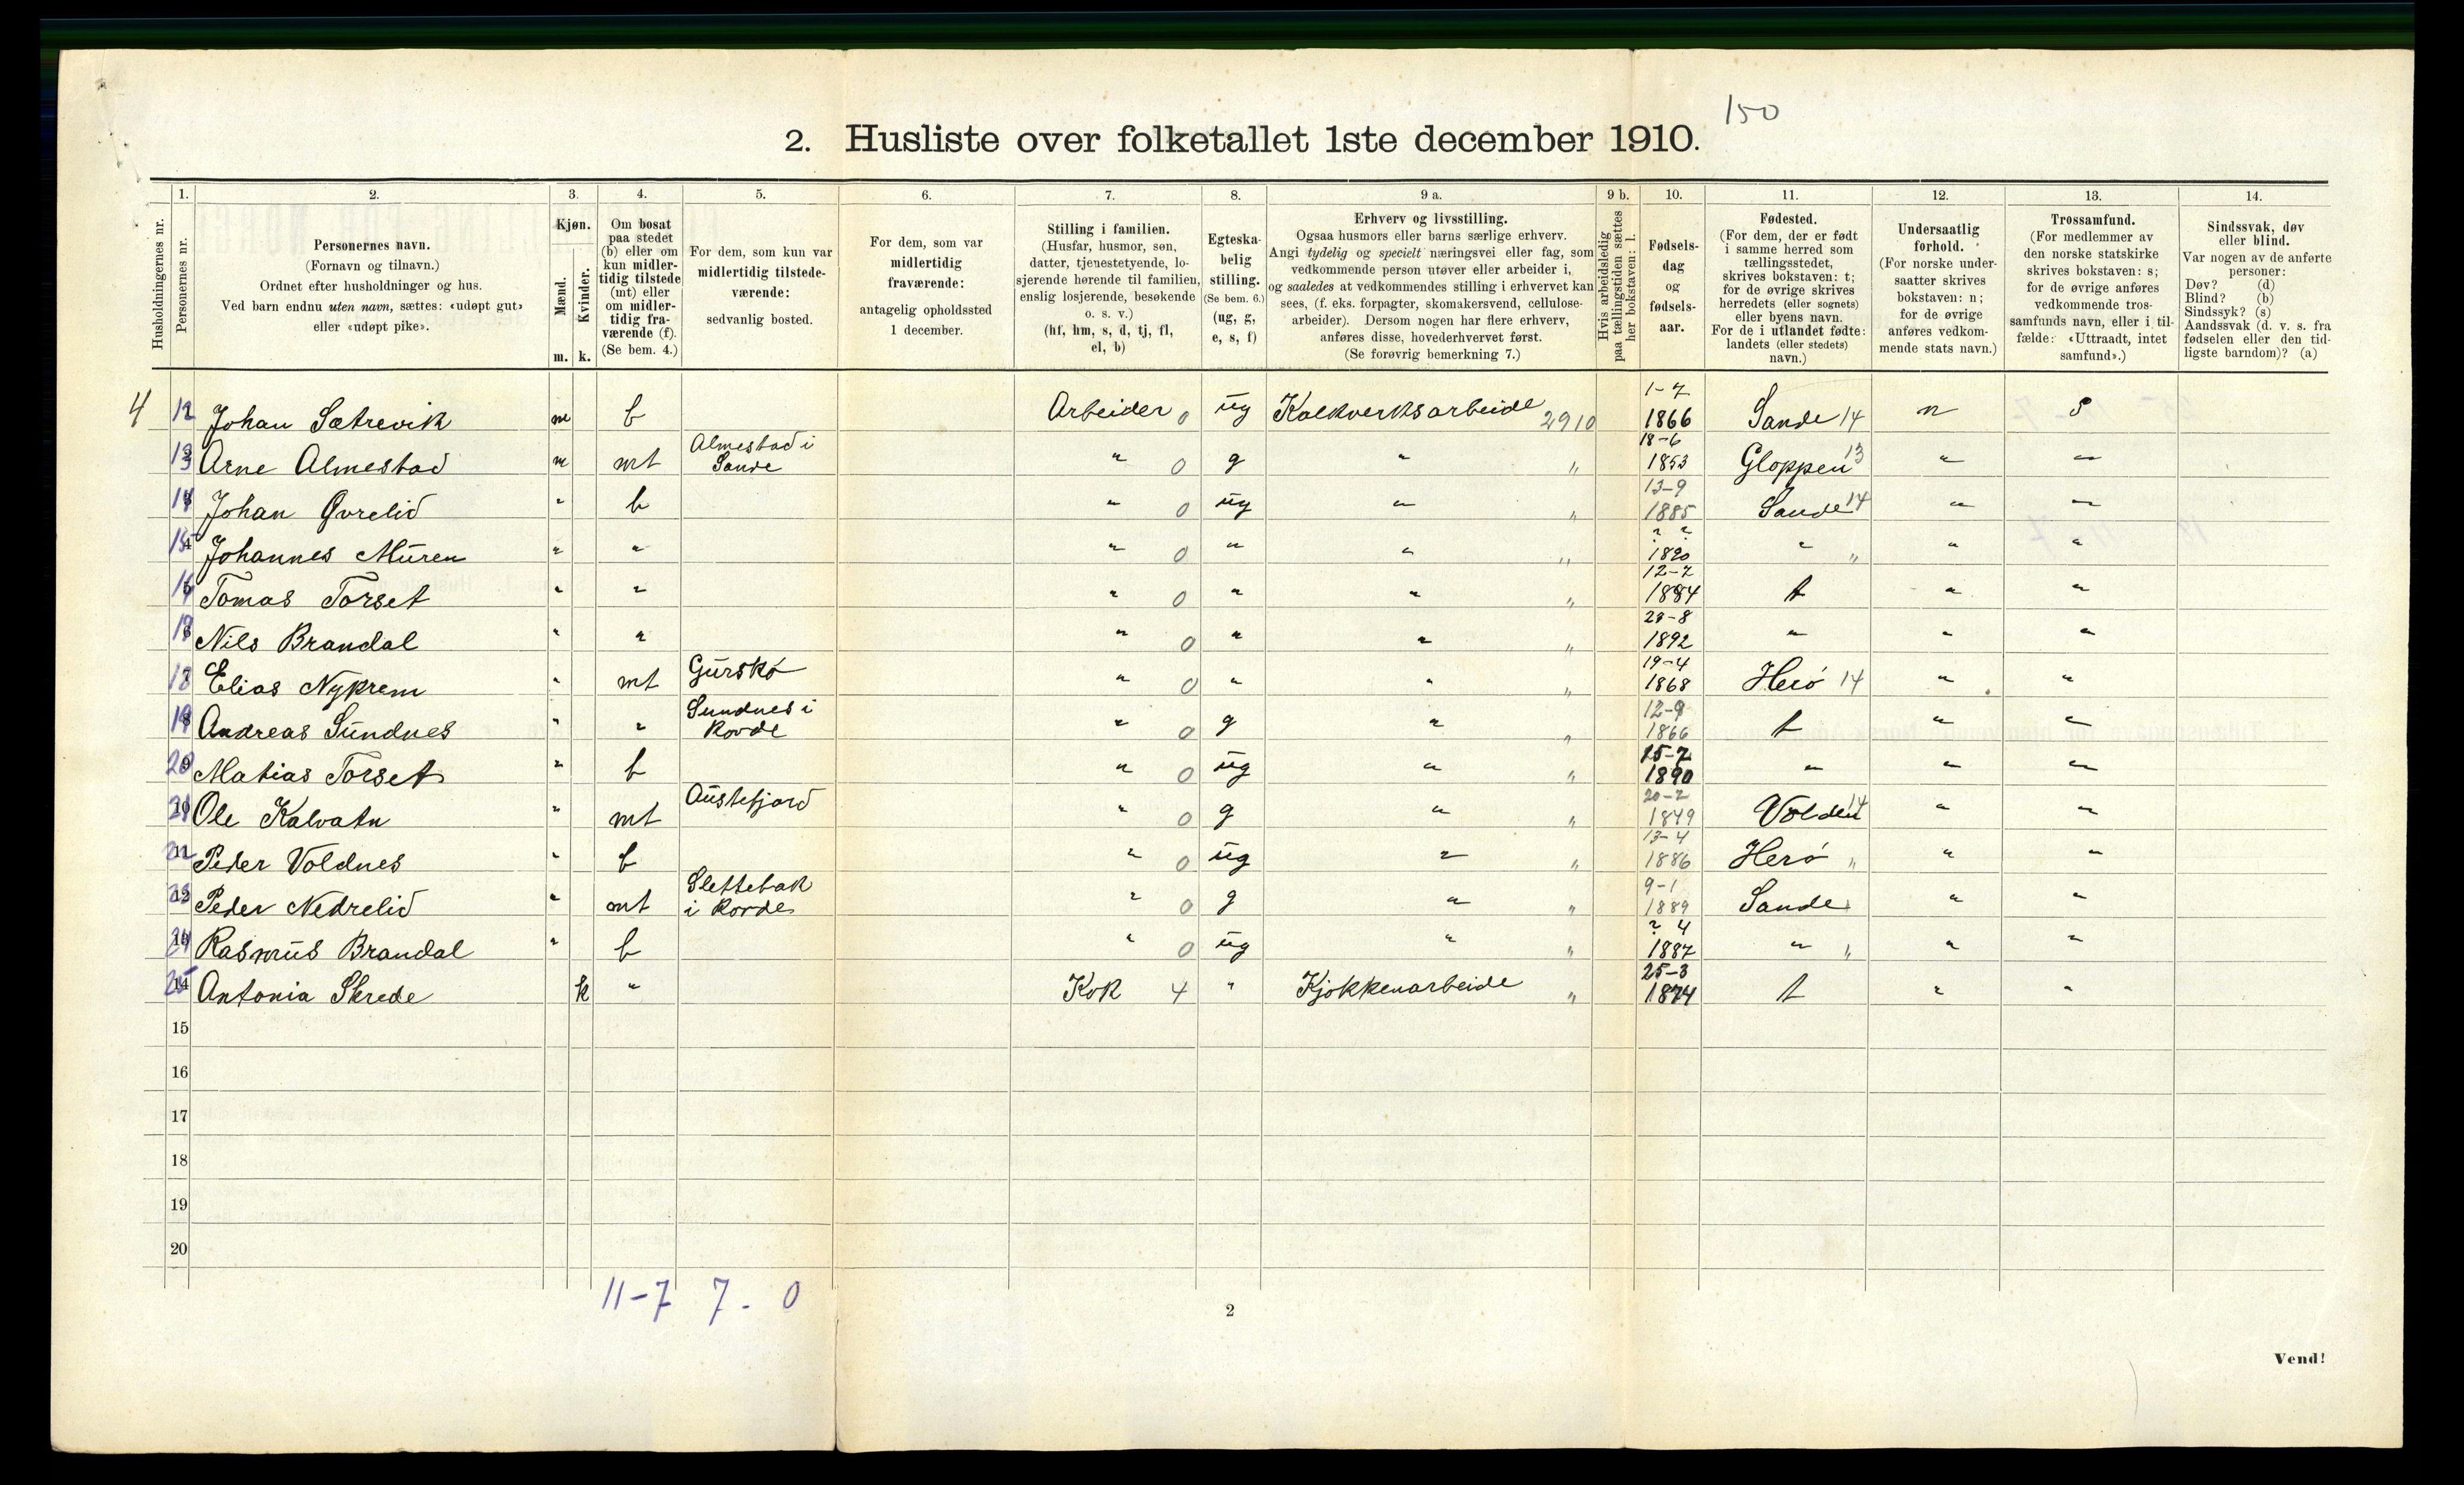 150
2. Husliste over folketallet 1ste december 1910.
Husholdningernes nr.
1. Personernes nr.
2. Personernes navn. (Fornavn og tilnavn.) Ordnet efter husholdninger og hus. Ved barn endnu uten navn, sættes: «udøpt gut» eller «udøpt pike».
3. Kjøn. Mænd. m. Kvinder. k.
4. Om bosat paa stedet (b) eller om kun midlertidig tilstede (mt) eller om midlertidig fraværende (f). (Se bem. 4.)
5. For dem, som kun var midlertidig tilstedeværende: sedvanlig bosted.
6. For dem, som var midlertidig fraværende: antagelig opholdssted 1 december.
7. Stilling i familien. (Husfar, husmor, søn, datter, tjenestetyende, losjerende hørende til familien, enslig losjerende, besøkende o. s. v.) (hf, hm, s, d, tj, fl, el, b)
8. Egteskabelig stilling. (Se bem. 6.) (ug, g, e, s, f)
9 a. Erhverv og livsstilling. Ogsaa husmors eller barns særlige erhverv. Angi tydelig og specielt næringsvei eller fag, som vedkommende person utøver eller arbeider i, og saaledes at vedkommendes stilling i erhvervet kan sees, (f. eks. forpagter, skomakersvend, cellulosearbeider). Dersom nogen har flere erhverv, anføres disse, hovederhvervet først. (Se forøvrig bemerkning 7.)
9 b. Hvis arbeidsledig paa tællingstiden sættes her bokstaven: l.
10. Fødselsdag og fødselsaar.
11. Fødested. (For dem, der er født i samme herred som tællingsstedet, skrives bokstaven: t; for de øvrige skrives herredets (eller sognets) eller byens navn. For de i utlandet fødte: landets (eller stedets) navn.)
12. Undersaatlig forhold. (For norske undersaatter skrives bokstaven: n; for de øvrige anføres vedkommende stats navn.)
13. Trossamfund. (For medlemmer av den norske statskirke skrives bokstaven: s; for de øvrige anføres vedkommende trossamfunds navn, eller i tilfælde: «Uttraadt, intet samfund».)
14. Sindssvak, døv eller blind. Var nogen av de anførte personer: Døv? (d) Blind? (b) Sindssyk? (s) Aandssvak (d. v. s. fra fødselen eller den tidligste barndom)? (a)
4 12 Johan Sætrevik m b Arbeider 0 ug Kalkverksarbeide 2910 1-7 1866 Sande 14 n s
13 Arne Almestad m mt Almestad i Sande " 0 g " " 18-6 1853 Gloppen 13 " "
14 Johan Øvrelid " b " 0 ug " " 13-9 1885 Sande 14 " "
15 Johannes Muren " " " 0 " " " ? ? 1890 " " " "
16 Tomas Torset " " " 0 " " " 12-7 1884 t " "
Nils Brandal " " " 0 " " " 1892 " " "
18 Elias Nykrem " mt Gurskø " 0 " " " 19-4 1868 Herø 14 " "
19 Andreas Sundnes " " Sundnes i Rovde " 0 g " " 1866 t " "
20 Matias Torset " b " 0 ug " " 15-7 1890 " " "
21 Ole Kalvatn " mt Austefjord " 0 g " " 20-2 1849 Volden 14 " "
22 Peder Voldnes " b " 0 ug " " 13-4 1886 Herø " " "
23 Peder Nedrelid " mt Slettebak i Rovde " 0 g " " 9-1 1889 Sande " " "
24 Rasmus Brandal " b " 0 ug " " ? 4 1887 " " " "
25 Antonia Skrede k " Kok 4 " Kjøkkenarbeide " 25-3 1874 t " "
15
16
17
18
19
20
11-7 7. 0
2
Vend!